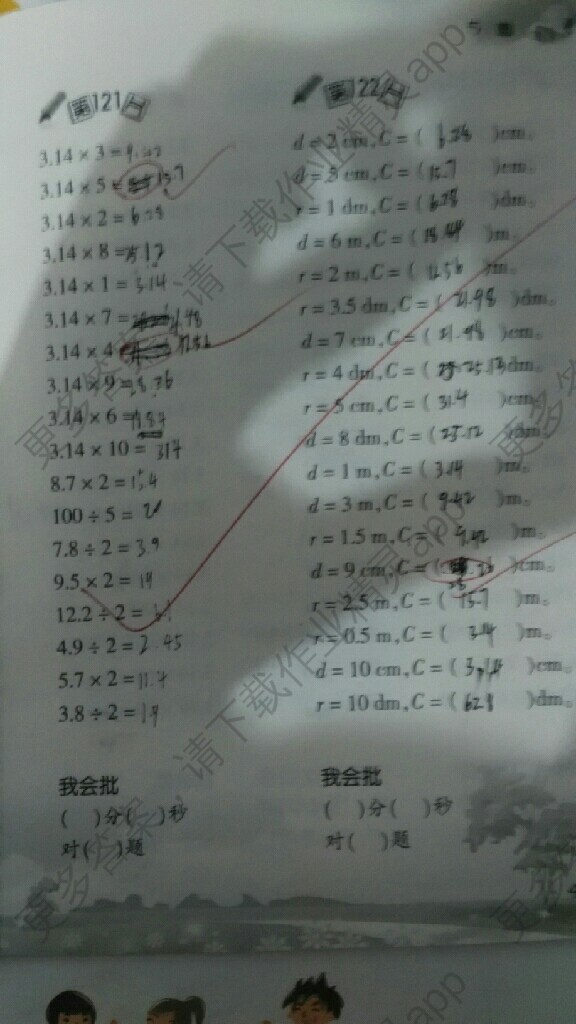 第121日
3.14 × 3 = 9.42
3.14 × 5 = 15.7
3.14 × 2 = 6.28
3.14 × 8 = 25.12
3.14 × 1 = 3.14
3.14 × 7 =
3.14 × 4 = 12.56
3.14 × 9 = 28.26
3.14 × 6 =
3.14 × 10 = 31.4
8.7 × 2 = 17.4
100 ÷ 5 = 20
7.8 ÷ 2 = 3.9
9.5 × 2 = 19
12.2 ÷ 2 = 6.1
4.9 ÷ 2 = 2.45
5.7 × 2 = 11.4
3.8 ÷ 2 = 1.9
我会批
( )分( )秒
对( )题
第22日
d = 2 cm, C = ( 6.28 )cm。
d = 5 cm, C = ( 15.7 )cm。
r = 1 dm, C = ( 6.28 )dm。
d = 6 m, C = ( 18.84 )m。
r = 2 m, C = ( 12.56 )m。
r = 3.5 dm, C = ( 21.98 )dm。
d = 7 cm, C = ( 21.98 )cm。
r = 4 dm, C = ( 25.12 )dm。
r = 5 cm, C = ( 31.4 )cm。
d = 8 dm, C = ( 25.12 )dm。
d = 1 m, C = ( 3.14 )m。
d = 3 m, C = ( 9.42 )m。
r = 1.5 m, C = ( 9.42 )m。
d = 9 cm, C = ( 28.26 )cm。
r = 2.5 m, C = ( 15.7 )m。
r = 0.5 m, C = ( 3.14 )m。
d = 10 cm, C = ( 31.4 )cm。
r = 10 dm, C = ( 62.8 )dm。
我会批
( )分( )秒
对( )题
更多答案，请下载作业精灵app
更多答案，请下载作业精灵app
更多答案